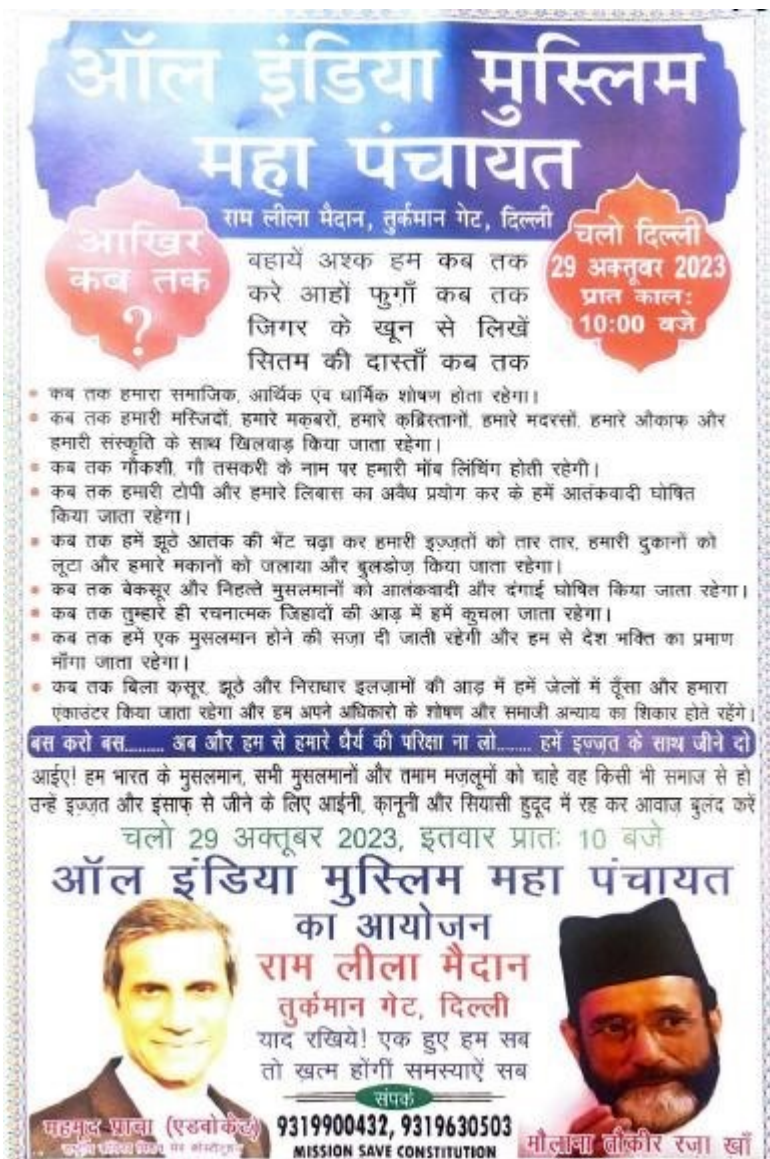 ऑल इंडिया मुस्लिम
महा पंचायत
राम लीला मैदान, तुर्कमान गेट, दिल्ली
आखिर
कब तक
?
चलो दिल्ली
29 अक्तूवर 2023
प्रात काल:
10:00 वजे
बहायें अश्क हम कब तक
करे आहों फुगाँ कब तक
जिगर के खून से लिखें
सितम की दास्ताँ कब तक
• कब तक हमारा समाजिक, आर्थिक एंव धार्मिक शोषण होता रहेगा।
• कब तक हमारी मस्जिदों, हमारे मक़बरों, हमारे क़ब्रिस्तानों, हमारे मदरसों, हमारे औकाफ़ और
हमारी संस्कृति के साथ खिलवाड़ किया जाता रहेगा।
• कब तक गौकशी, गौ तसकरी के नाम पर हमारी मॉब लिंचिंग होती रहेगी।
• कब तक हमारी टोपी और हमारे लिबास का अवैध प्रयोग कर के हमें आतंकवादी घोषित
किया जाता रहेगा।
• कब तक हमें झूठे आतंक की भेंट चढ़ा कर हमारी इज़्ज़तों को तार तार, हमारी दुकानों को
लूटा और हमारे मकानों को जलाया और बुलडोज़ किया जाता रहेगा।
• कब तक बेकसूर और निहत्ते मुसलमानों को आतंकवादी और दंगाई घोषित किया जाता रहेगा।
• कब तक तुम्हारे ही रचनात्मक जिहादों की आड़ में हमें कुचला जाता रहेगा।
• कब तक हमें एक मुसलमान होने की सज़ा दी जाती रहेगी और हम से देश भक्ति का प्रमाण
माँगा जाता रहेगा।
• कब तक बिला क़सूर, झूठे और निराधार इलज़ामों की आड़ में हमें जेलों में ठूँसा और हमारा
एंकाउंटर किया जाता रहेगा और हम अपने अधिकारो के शोषण और समाजी अन्याय का शिकार होते रहेंगे।
बस करो बस......... अब और हम से हमारे धैर्य की परिक्षा ना लो........ हमें इज़्ज़त के साथ जीने दो
आईए! हम भारत के मुसलमान, सभी मुसलमानों और तमाम मज़लूमों को चाहे वह किसी भी समाज से हो
उन्हें इज़्ज़त और इंसाफ़ से जीने के लिए आईनी, क़ानूनी और सियासी हुदूद में रह कर आवाज़ बुलंद करें
चलो 29 अक्तूबर 2023, इतवार प्रातः 10 बजे
ऑल इंडिया मुस्लिम महा पंचायत
का आयोजन
राम लीला मैदान
तुर्कमान गेट, दिल्ली
याद रखिये! एक हुए हम सब
तो ख़त्म होंगीं समस्याऐं सब
संपर्क
9319900432, 9319630503
MISSION SAVE CONSTITUTION
महमूद प्राचा (एडवोकेट)
मौलाना तौकीर रजा खाँ